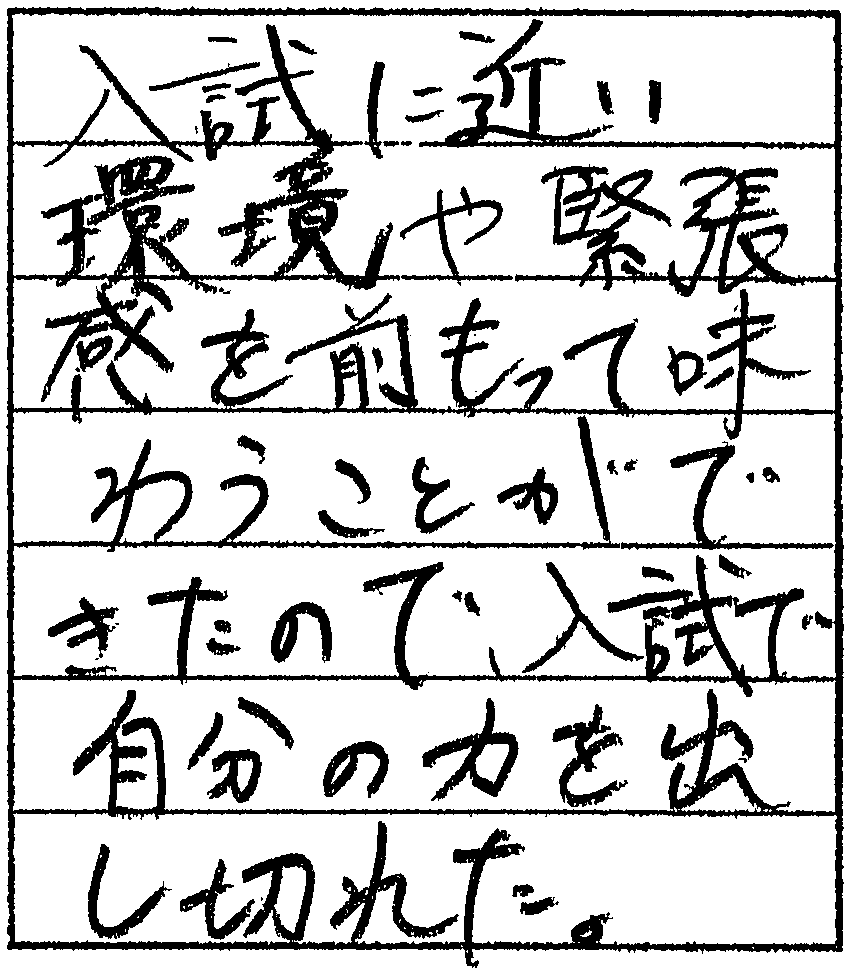 入試に近い
環境や緊張
感を前もって味
わうことがで
きたので、入試で
自分の力を出
し切れた。